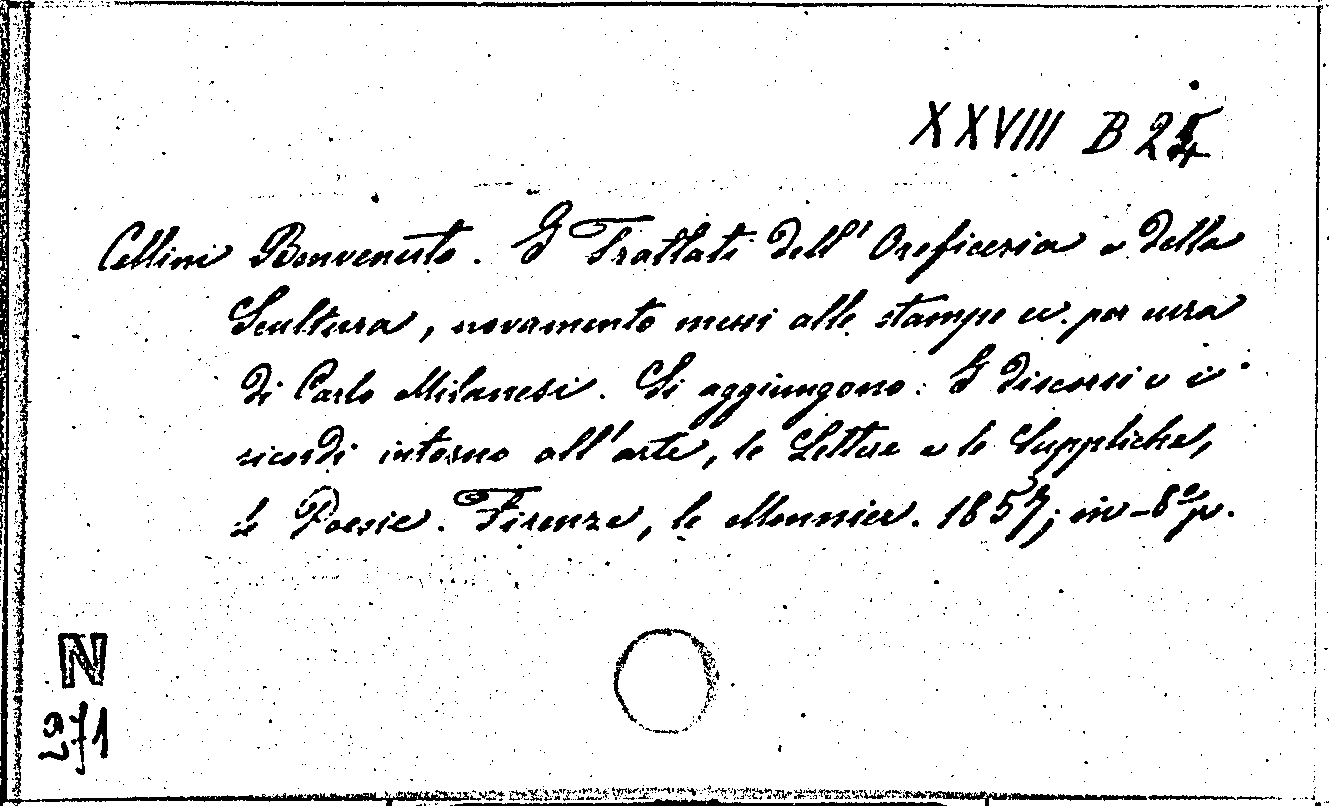 XXVIII B 25
Cellini Benvenuto. I Trattati dell' Oreficeria e della
Scultura, novamente messi alle stampe ec. per cura
di Carlo Milanesi. Si aggiungono: I discorsi e i
ricordi intorno all'arte, le Lettere e le Suppliche,
le Poesie. Firenze, le Monnier. 1857; in-8º p.
N
271